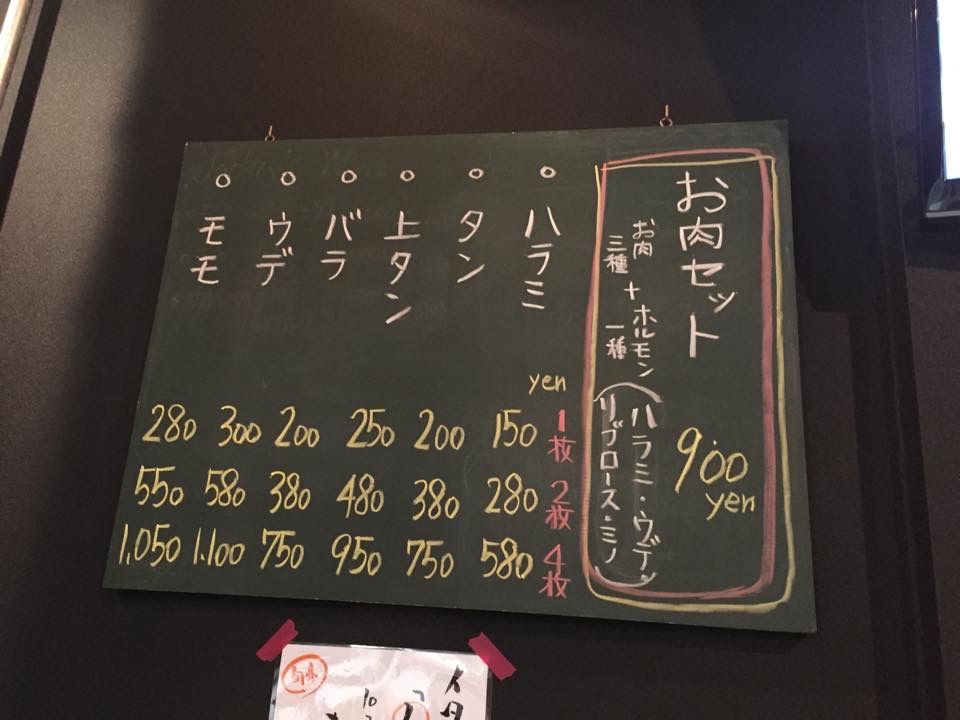 お肉セット
お肉三種+ホルモン一種
(ハラミ・ウデ
リブロース・ミノ)
900
yen
yen
1枚
2枚
4枚
○ハラミ
150
280
580
○タン
200
380
750
○上タン
250
480
950
○バラ
200
380
750
○ウデ
300
580
1.100
○モモ
280
550
1.050
イタ